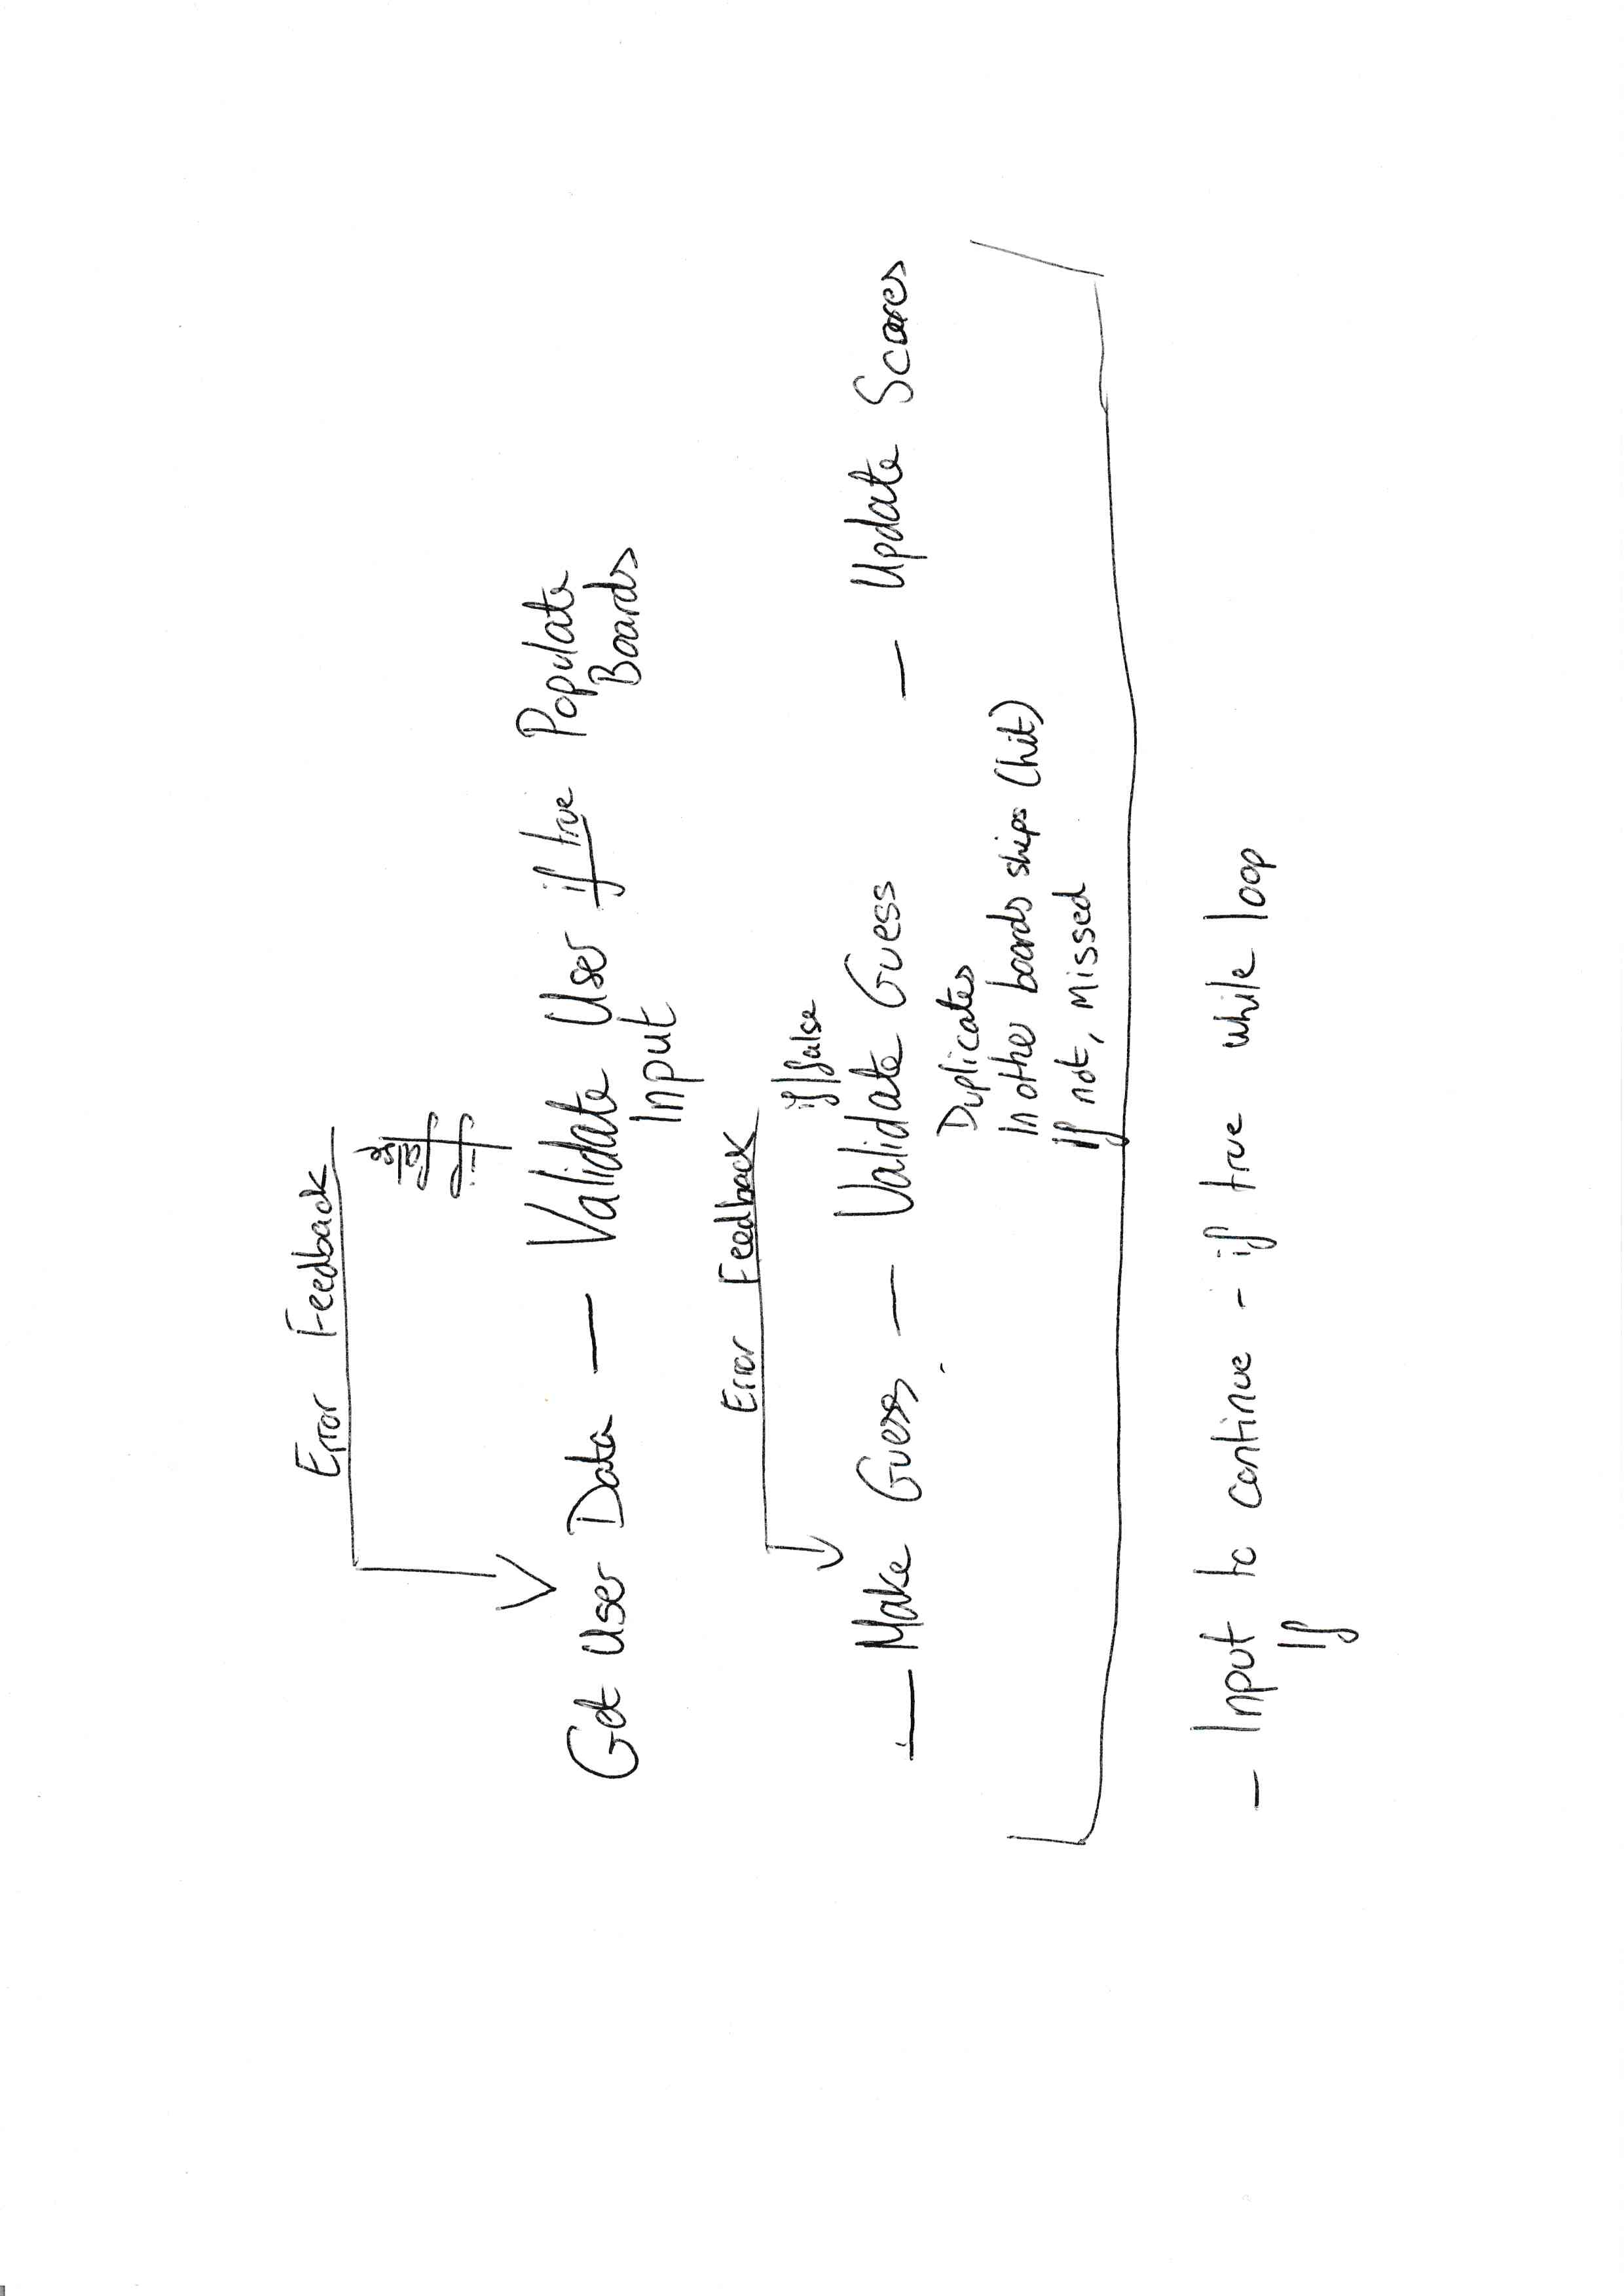 Error Feedback
Get User Data — Validate User if true Populate
Input
Boards
Error Feedback
if false
— Make Guess — Validate Guess — Update Scores
Duplicates
In other boards ships (hit)
If not, missed
- Input to continue - if true while loop
If